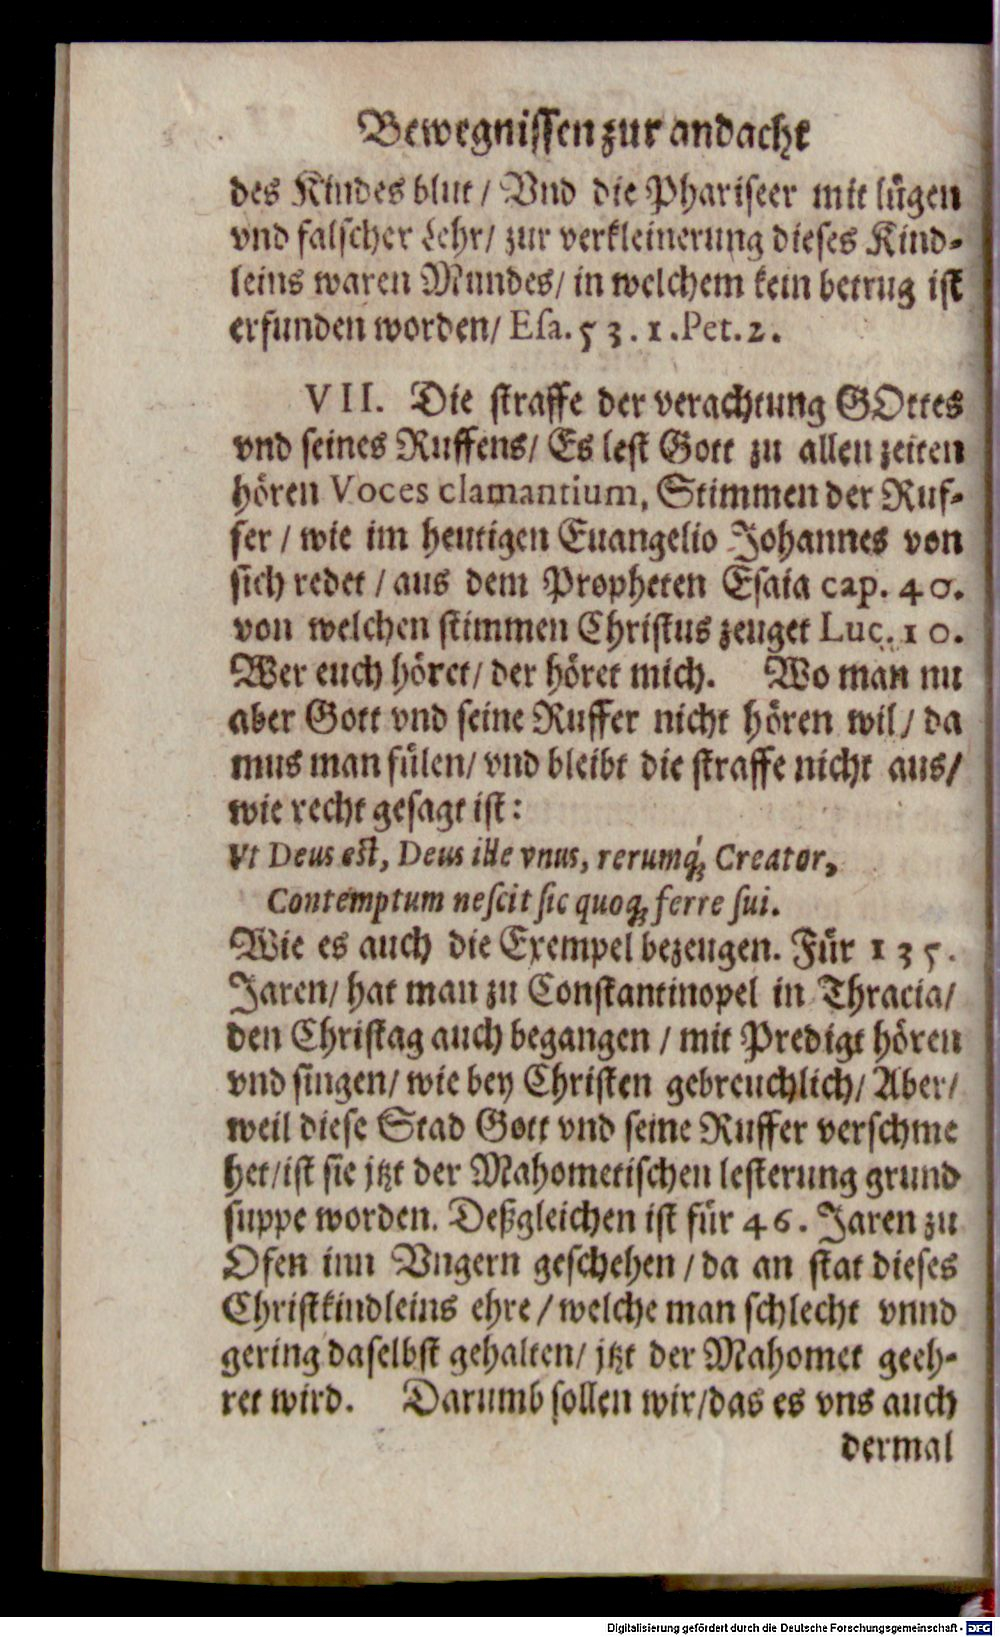 Bewegnissen zur andacht
des Kindes blut / Vnd die Phariseer mit lügen
vnd falscher Lehr / zur verkleinerung dieses Kind-
leins waren Mundes / in welchem kein betrug ist
erfunden worden / Esa. 53. 1. Pet. 2.
VII. Die straffe der verachtung GOttes
vnd seines Ruffens / Es lest Gott zu allen zeiten
hören Voces clamantium, Stimmen der Ruf-
fer / wie im heutigen Euangelio Johannes von
sich redet / aus dem Propheten Esaia cap. 40.
von welchen stimmen Christus zeuget Luc. 10.
Wer euch höret / der höret mich. Wo man nu
aber Gott vnd seine Ruffer nicht hören wil / da
mus man fülen / vnd bleibt die straffe nicht aus /
wie recht gesagt ist:
Vt Deus est, Deus ille vnus, rerumq́; Creator,
Contemptum nescit sic quoq; ferre sui.
Wie es auch die Exempel bezeugen. Für 135.
Jaren / hat man zu Constantinopel in Thracia /
den Christag auch begangen / mit Predigt hören
vnd singen / wie bey Christen gebreuchlich / Aber /
weil diese Stad Gott vnd seine Ruffer verschme
het / ist sie jtzt der Mahometischen lesterung grund
suppe worden. Deßgleichen ist für 46. Jaren zu
Ofen inn Vngern geschehen / da an stat dieses
Christkindleins ehre / welche man schlecht vnnd
gering daselbst gehalten / jtzt der Mahomet geeh-
ret wird. Darumb sollen wir / das es vns auch
dermal
Digitalisierung gefördert durch die Deutsche Forschungsgemeinschaft - DFG